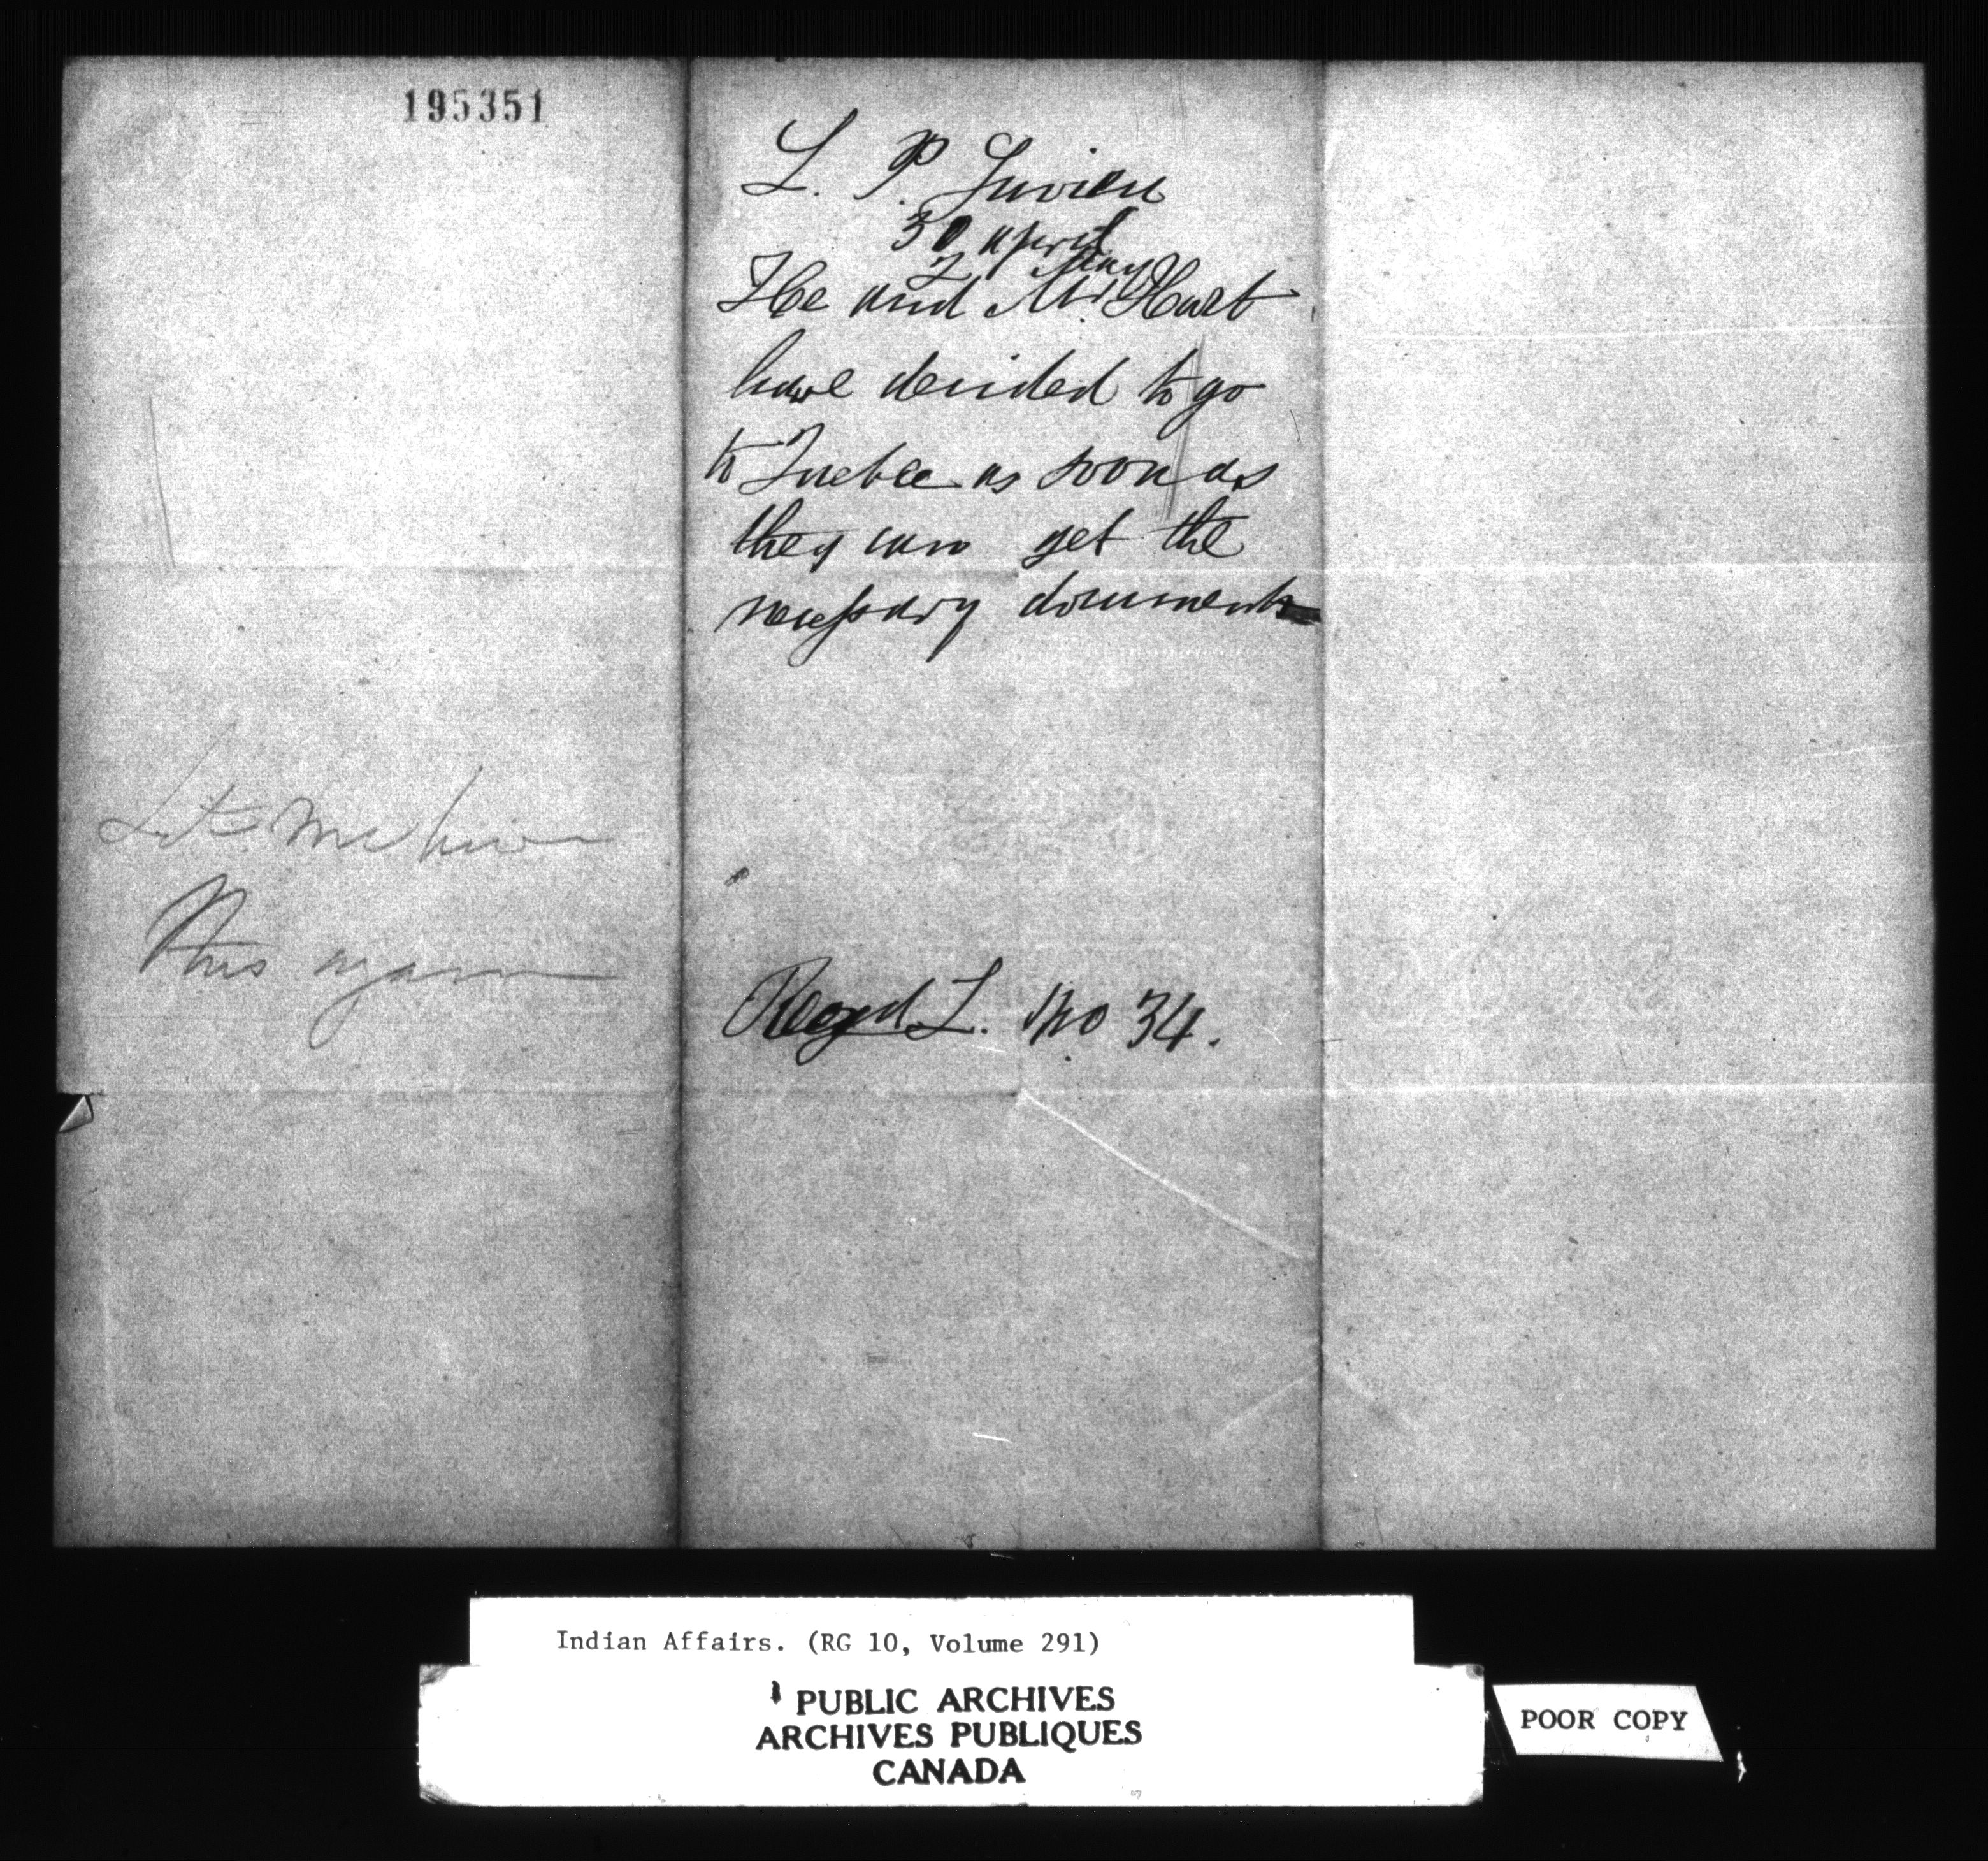 195351
L. P.
30 April
2 May
He and Mr. Hart
have decided to go
to Quebec as soon as
they can get the
necessary documents
Let me have
this again
Regd L. No 34.
Indian Affairs. (RG 10, Volume 291)
PUBLIC ARCHIVES
ARCHIVES PUBLIQUES
CANADA
POOR COPY